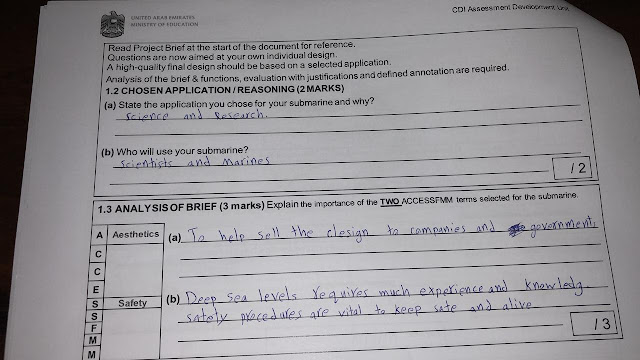 UNITED ARAB EMIRATES
MINISTRY OF EDUCATION
CDI Assessment Development Unit
Read Project Brief at the start of the document for reference.
Questions are now aimed at your own individual design.
A high-quality final design should be based on a selected application.
Analysis of the brief & functions, evaluation with justifications and defined annotation are required.
1.2 CHOSEN APPLICATION / REASONING (2 MARKS)
(a) State the application you chose for your submarine and why?
Science and Research.
(b) Who will use your submarine?
Scientists and Marines
/ 2
1.3 ANALYSIS OF BRIEF (3 marks) Explain the importance of the TWO ACCESSFMM terms selected for the submarine.
A Aesthetics (a) To help sell the design to companies and government,
C
C
E
S Safety (b) Deep sea levels requires much experience and knowledg.
S safety procedures are vital to keep safe and alive
F
M
M
/ 3